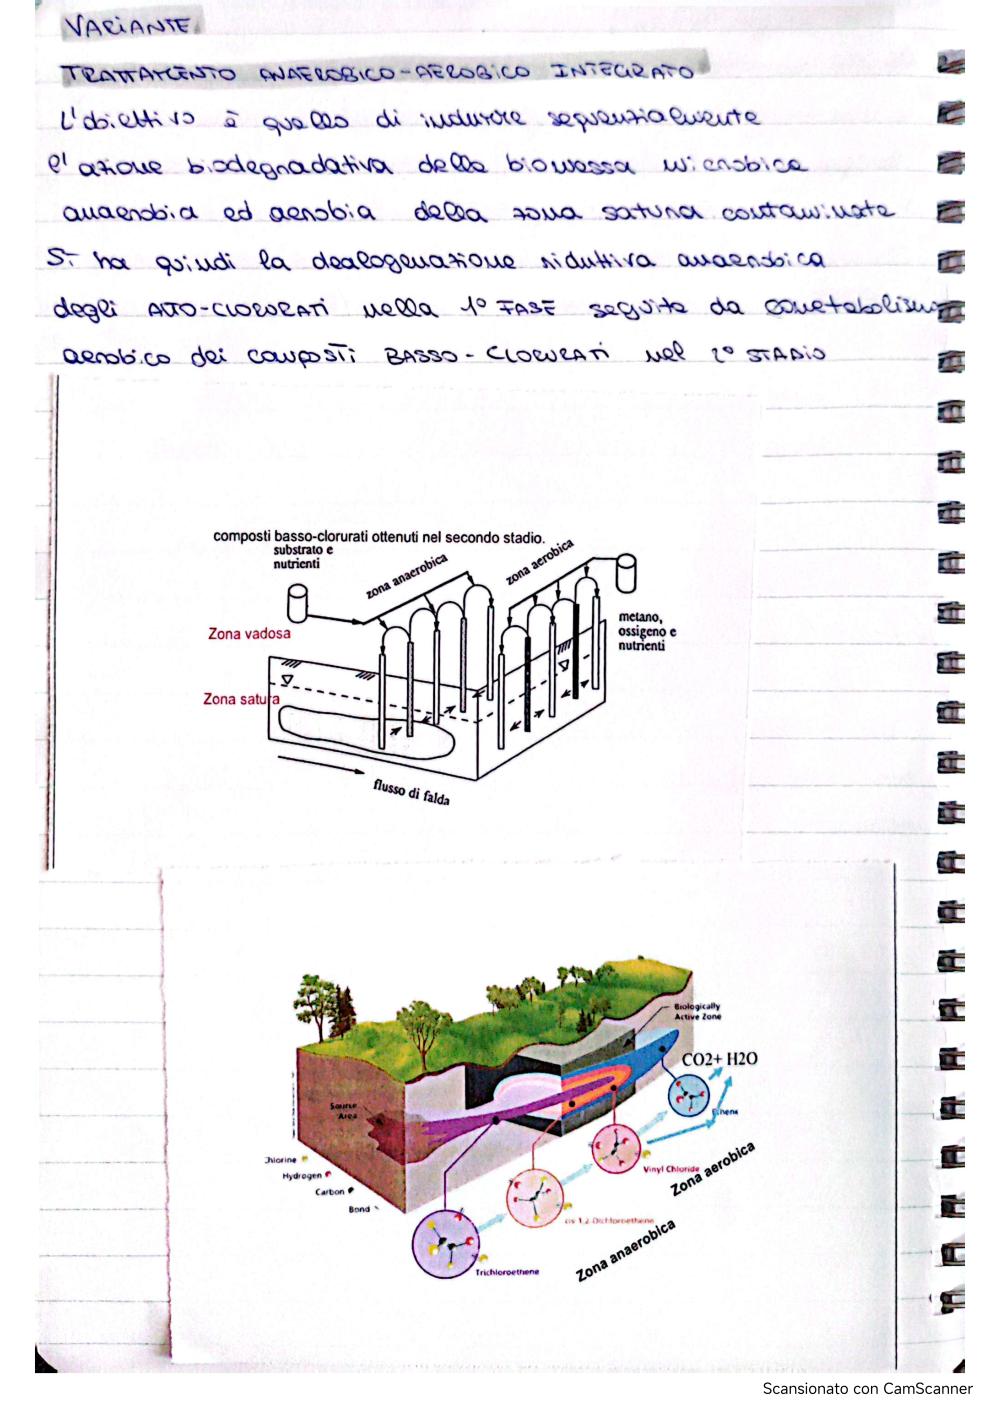 VARIANTE
TRATTAMENTO ANAEROBICO-AEROBICO INTEGRATO
L'obiettivo è quello di indurre sequenzialmente
l'azione biodegradativa della biomassa microbica
anaerobia ed aerobia della zona satura contaminata
Si ha quindi la dealogenazione riduttiva anaerobica
degli ALTO-CLORURATI nella 1° FASE seguita da cometabolismo
aerobico dei composti BASSO-CLORURATI nel 2° STADIO
composti basso-clorurati ottenuti nel secondo stadio.
substrato e
nutrienti
zona anaerobica
zona aerobica
metano,
ossigeno e
nutrienti
Zona vadosa
Zona satura
flusso di falda
Biologically
Active Zone
CO2+ H2O
Source
Area
Ethene
Chlorine
Hydrogen
Carbon
Bond
Vinyl Chloride
Zona aerobica
cis 1,2-Dichloroethene
Zona anaerobica
Trichloroethene
Scansionato con CamScanner